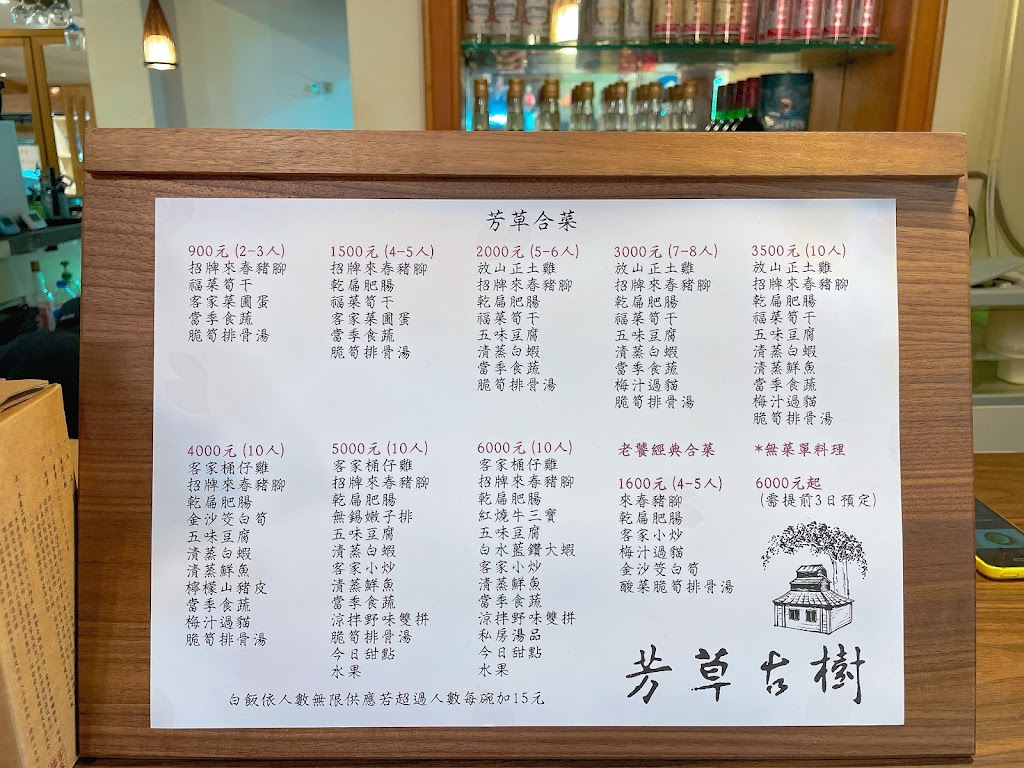 芳草合菜
900元(2-3人)
招牌來春豬腳
福菜筍干
客家菜圃蛋
當季食蔬
脆筍排骨湯
1500元(4-5人)
招牌來春豬腳
乾扁肥腸
福菜筍干
客家菜圃蛋
當季食蔬
脆筍排骨湯
2000元(5-6人)
放山正土雞
招牌來春豬腳
乾扁肥腸
福菜筍干
五味豆腐
清蒸白蝦
當季食蔬
脆筍排骨湯
3000元(7-8人)
放山正土雞
招牌來春豬腳
乾扁肥腸
福菜筍干
五味豆腐
清蒸白蝦
當季食蔬
梅汁過貓
脆筍排骨湯
3500元(10人)
放山正土雞
招牌來春豬腳
乾扁肥腸
福菜筍干
五味豆腐
清蒸白蝦
清蒸鮮魚
當季食蔬
梅汁過貓
脆筍排骨湯
4000元(10人)
客家桶仔雞
招牌來春豬腳
乾扁肥腸
金沙筊白筍
五味豆腐
清蒸白蝦
清蒸鮮魚
檸檬山豬皮
當季食蔬
梅汁過貓
脆筍排骨湯
5000元(10人)
客家桶仔雞
招牌來春豬腳
乾扁肥腸
無錫嫩子排
五味豆腐
清蒸白蝦
客家小炒
清蒸鮮魚
當季食蔬
涼拌野味雙拼
脆筍排骨湯
今日甜點
水果
6000元(10人)
客家桶仔雞
招牌來春豬腳
乾扁肥腸
紅燒牛三寶
五味豆腐
白水藍鑽大蝦
客家小炒
清蒸鮮魚
當季食蔬
涼拌野味雙拼
私房湯品
今日甜點
水果
老饕經典合菜
1600元(4-5人)
來春豬腳
乾扁肥腸
客家小炒
梅汁過貓
金沙筊白筍
酸菜脆筍排骨湯
*無菜單料理
6000元起
(需提前3日預定)
芳草古樹
白飯依人數無限供應若超過人數每碗加15元